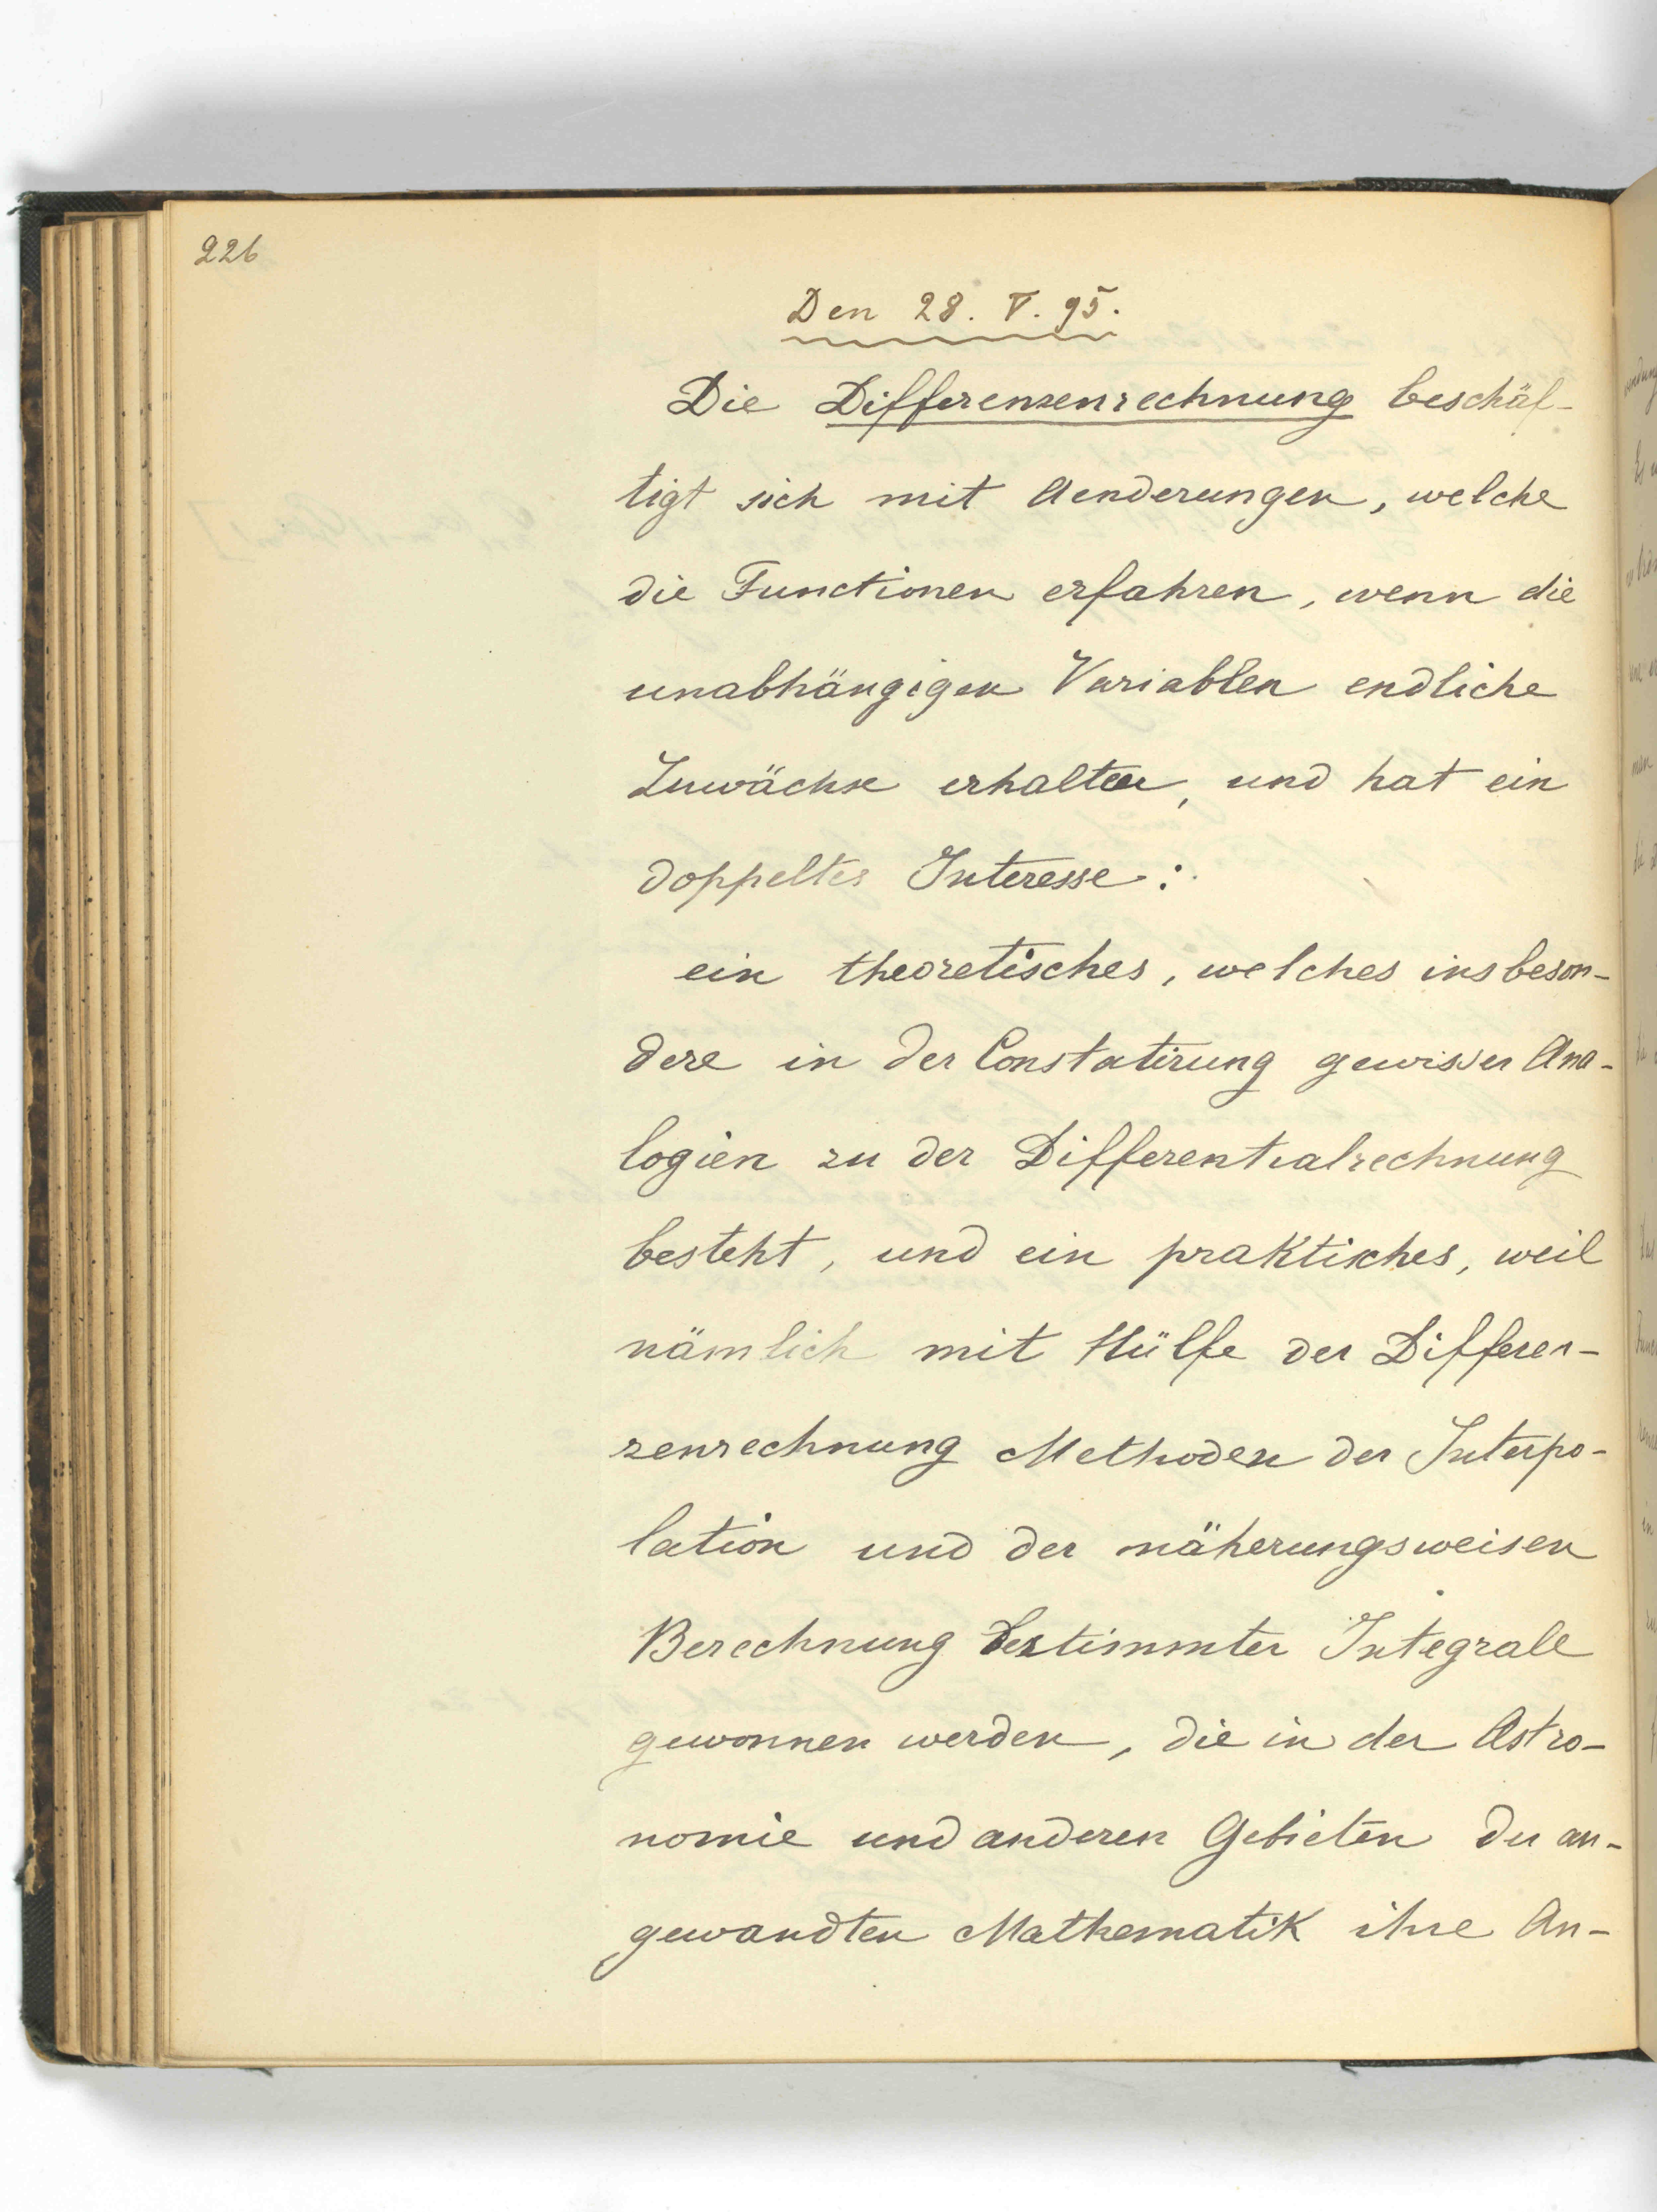 226
Den 28. V. 95.
Die Differenzenrechnung beschäf-
tigt sich mit Aenderungen, welche
die Functionen erfahren, wenn die
unabhängigen Variablen endliche
Zuwächse erhalten, und hat ein
doppeltes Interesse:
ein theoretisches, welches insbeson-
dere in der Constatirung gewisser Ana-
logien zu der Differentialrechnung
besteht, und ein praktisches, weil
nämlich mit Hülfe der Differen-
zenrechnung Methoden der Interpo-
lation und der näherungsweisen
Berechnung bestimmter Integrale
gewonnen werden, die in der Astro-
nomie und anderen Gebieten der an-
gewandten Mathematik ihre An-